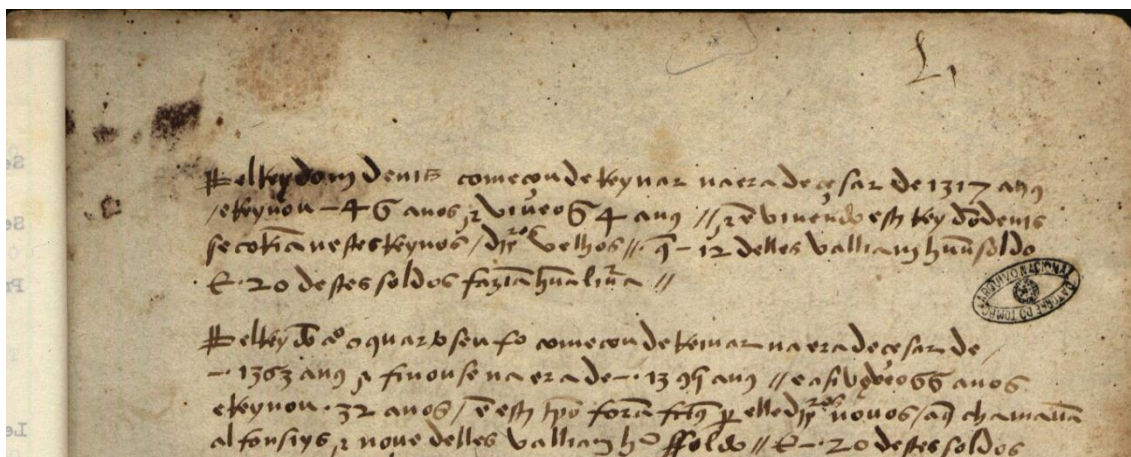 El Rey dom denis começou de Reynar na era de çesar de 1317 años
/ e Reynou – 46 anos, e viveo 64 anos // e ē vivendo este Rey dō denis
se corriā nestes Reynos / dros velhos // q – 12 delles valliam hum soldo
E · 20 destes soldos faziā hūa livra //
El Rey dō aº o quarto seu fº começou de Reinar na era de çesar de /
– · 1363 anos e finouse na era de – · 13 anos // e asi viveo 66 anos
e Reynou · 32 anos / ē este tpo forā ftos per elle dros novos / a q chamavā
alfonsiys, e nove delles valliam hū ssoldo // E – · 20 destes soldos
ARQUIVO NACIONAL DA TORRE DO TOMBO